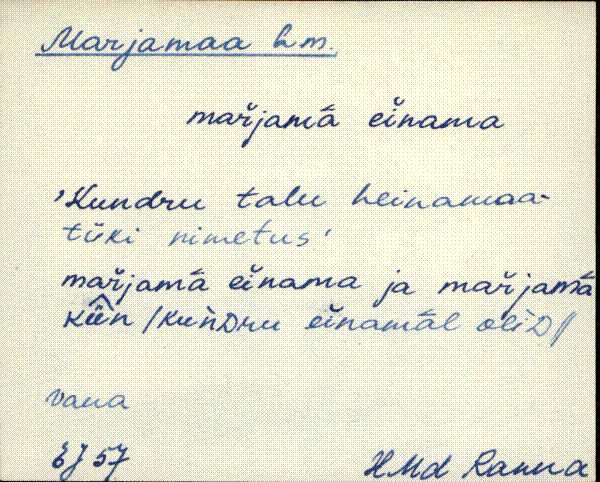 Marjamaa hm.
mařjamā eǐnama
'Kundru talu heinamaa-
tüki nimetus'
mařjamā eǐnama ja mařjamā
kǖn /kuǹDru eǐnamāl oliD/
vana
EJ 57 HMd Ranna